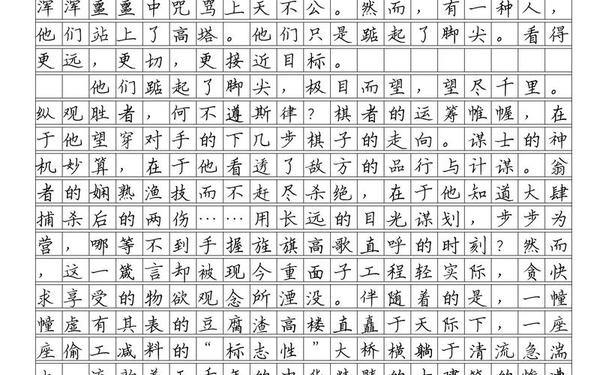 浑浑噩噩中咒骂上天不公。然而，有一种人，
他们站上了高塔。他们只是踮起了脚尖。看得
更远，更切，更接近目标。
他们踮起了脚尖，极目而望，望尽千里。
纵观胜者，何不遵斯律？棋者的运筹帷幄，在
于他望穿对手的下几步棋子的走向。谋士的神
机妙算，在于他看透了敌方的品行与计谋。翁
者的娴熟渔技而不赶尽杀绝，在于他知道大肆
捕杀后的两伤……用长远的目光谋划，步步为
营，哪等不到手握旌旗高歌直呼的时刻？然而
，这一箴言却被现今重面子工程轻实际，贪快
求享受的物欲观念所湮没。伴随着的是，一幢
幢虚有其表的豆腐渣高楼直矗于天际下，一座
座偷工减料的“标志性”大桥横躺于清流急湍